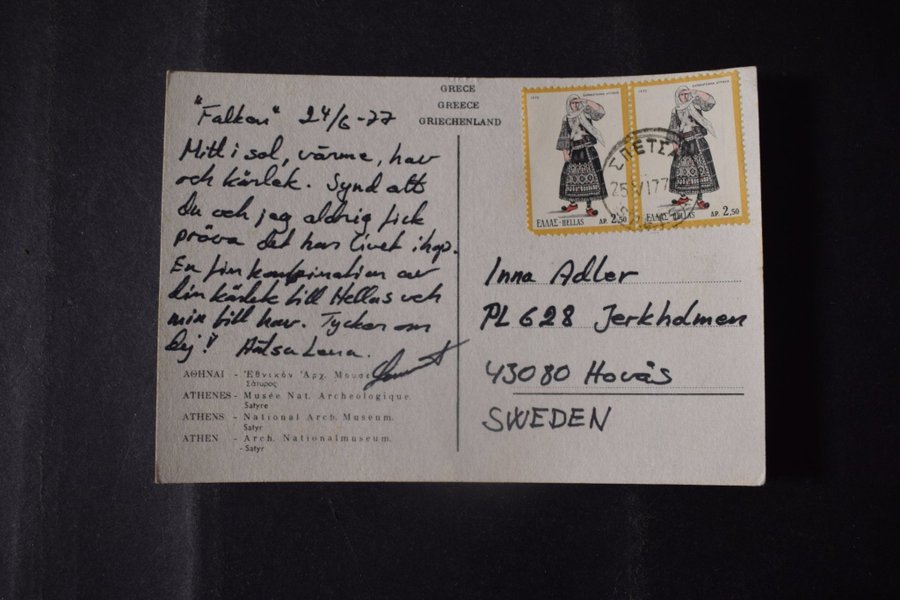 GRECE
GREECE
GRIECHENLAND
"Falken" 24/6-77
Mitt i sol, värme, hav
och kärlek. Synd att
Du och jag aldrig fick
pröva det här livet ihop.
En fin kombination av
din kärlek till Hellas och
min till hav. Tycker om
Dej! Hälsa Lena.
ΑΘΗΝΑΙ - Ἐθνικὸν Ἀρχ. Μουσε
Σάτυρος
ATHENES - Musée Nat. Archeologique.
Satyre
ATHENS - National Arch. Museum.
Satyr
ATHEN - Arch. Nationalmuseum.
Satyr
1972
1972
ΕΛΛΑΣ-HELLAS ΔΡ. 2,50
ΕΛΛΑΣ-HELLAS ΔΡ. 2,50
ΣΠΕΤΣΑ
Inna Adler
PL 628 Jerkholmen
43080 Hovås
SWEDEN